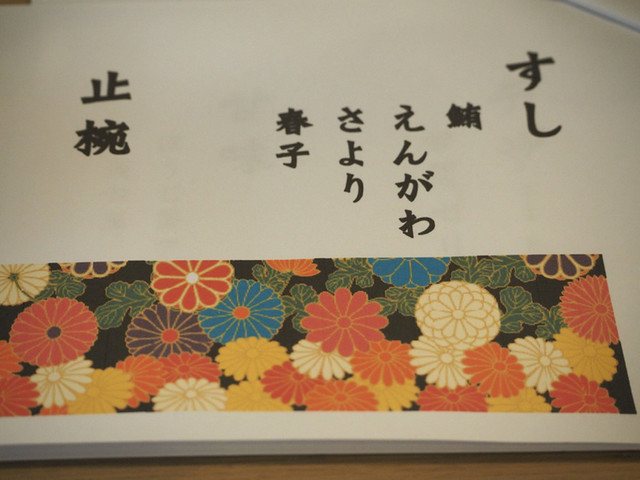 すし
鮪
えんがわ
さより
春子
止椀